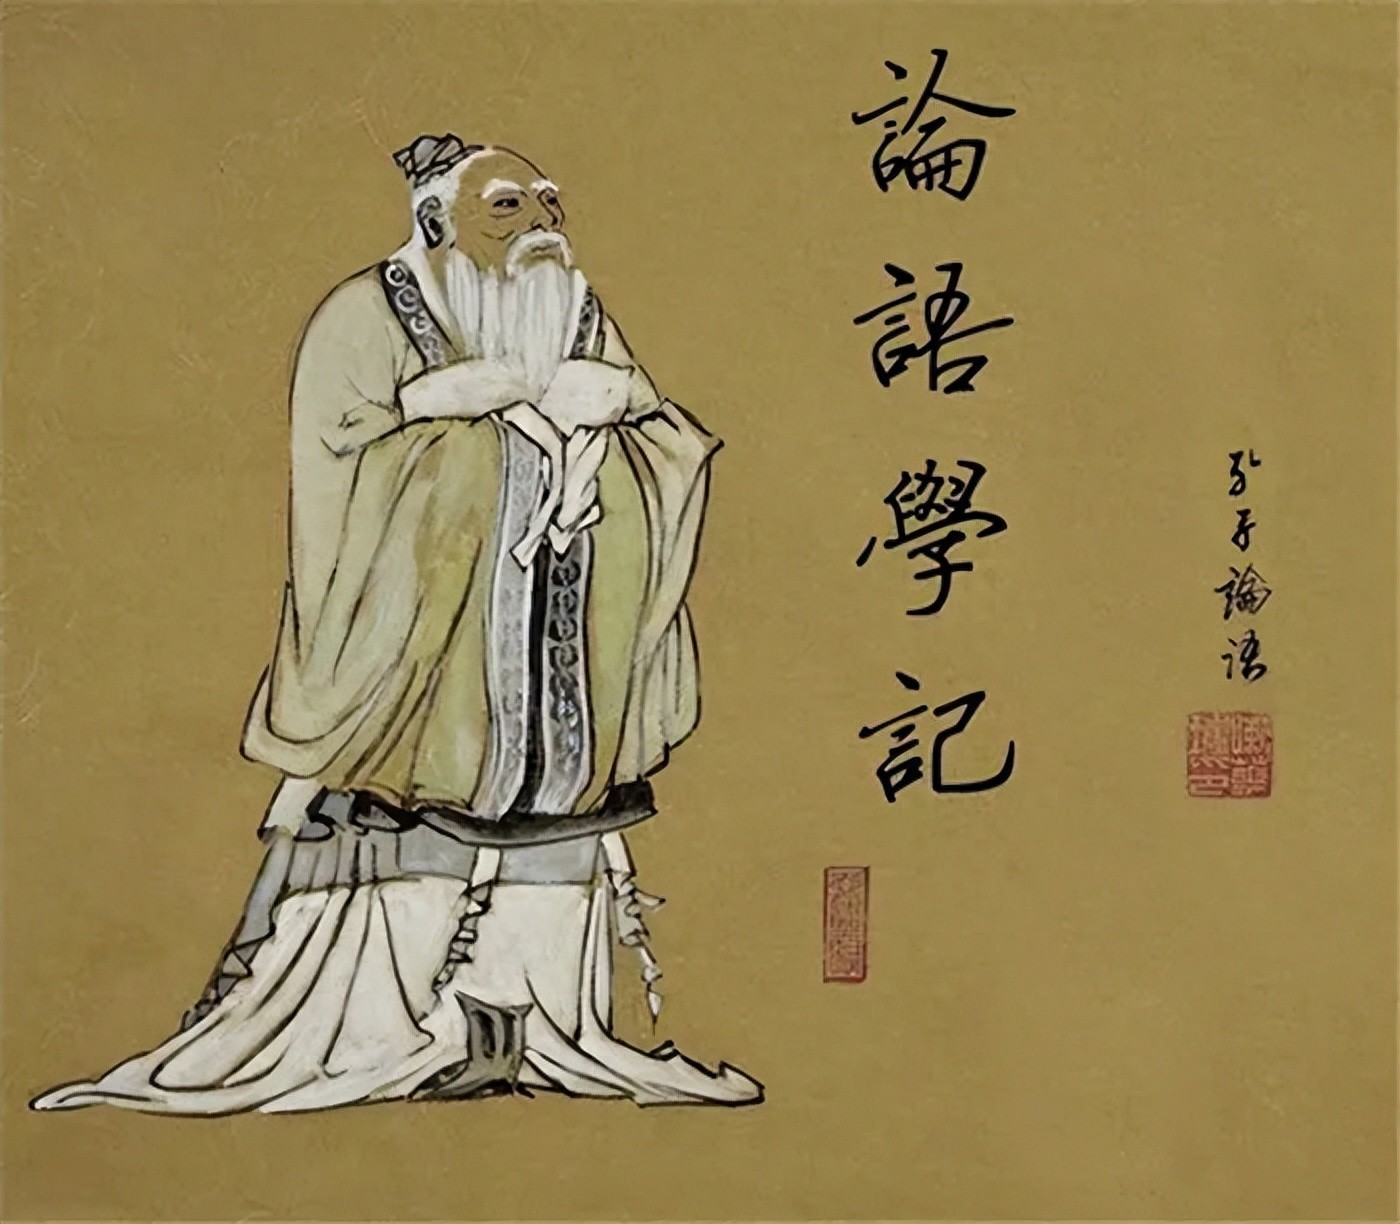 孔子論語
論語學記